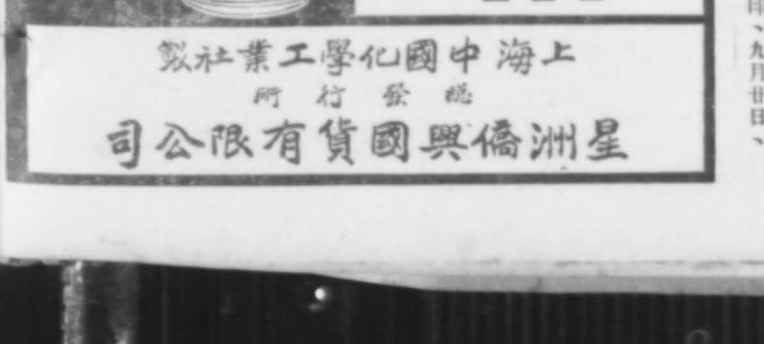 上海中國化學工業社製
總發行所
星洲僑興國貨有限公司
印、九月廿日、